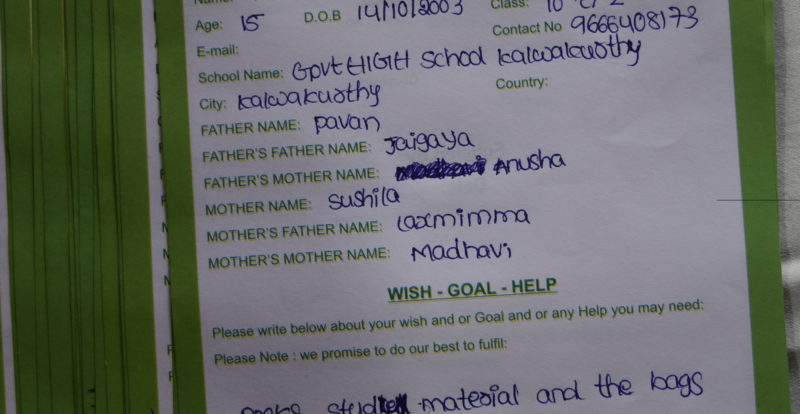 Name:
Age: 15 D.O.B 14/10/2003 Class: 10
Contact No 9666408173
E-mail:
School Name: Govt HIGH School Kalwakurthy
City: Kalwakurthy Country:
FATHER NAME: Pavan
FATHER'S FATHER NAME: Jaigaya
FATHER'S MOTHER NAME: Anusha
MOTHER NAME: Sushila
MOTHER'S FATHER NAME: Laxmimma
MOTHER'S MOTHER NAME: Madhavi
WISH - GOAL - HELP
Please write below about your wish and or Goal and or any Help you may need:
Please Note : we promise to do our best to fulfil:
material and the bags